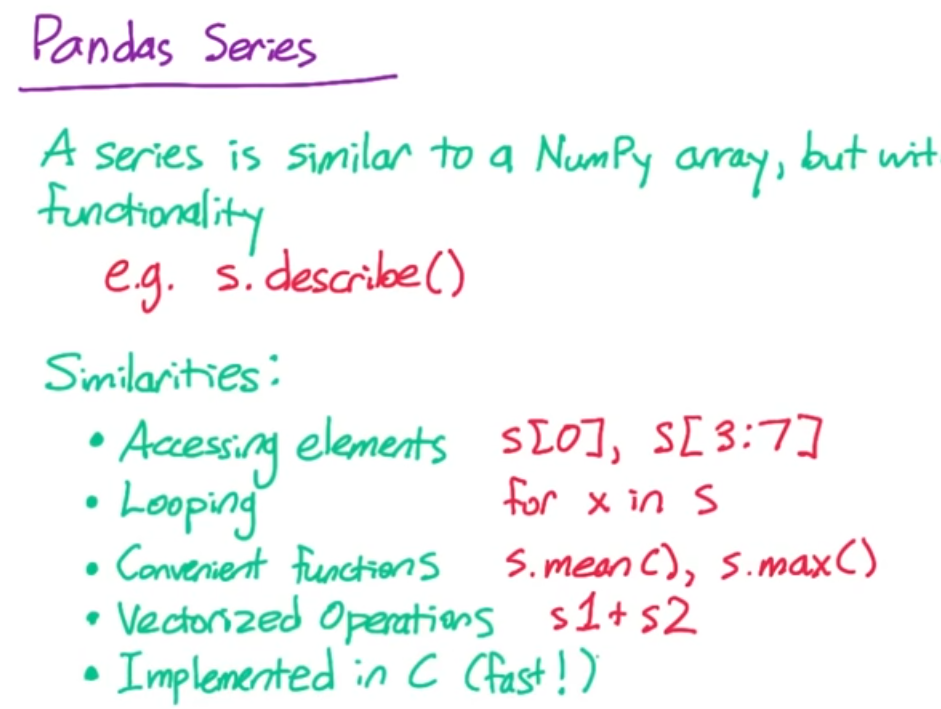 Pandas Series
A series is similar to a NumPy array, but wit
functionality
e.g. s.describe()
Similarities:
• Accessing elements s[0], s[3:7]
• Looping for x in s
• Convenient functions s.mean(), s.max()
• Vectorized Operations s1+s2
• Implemented in C (fast!)